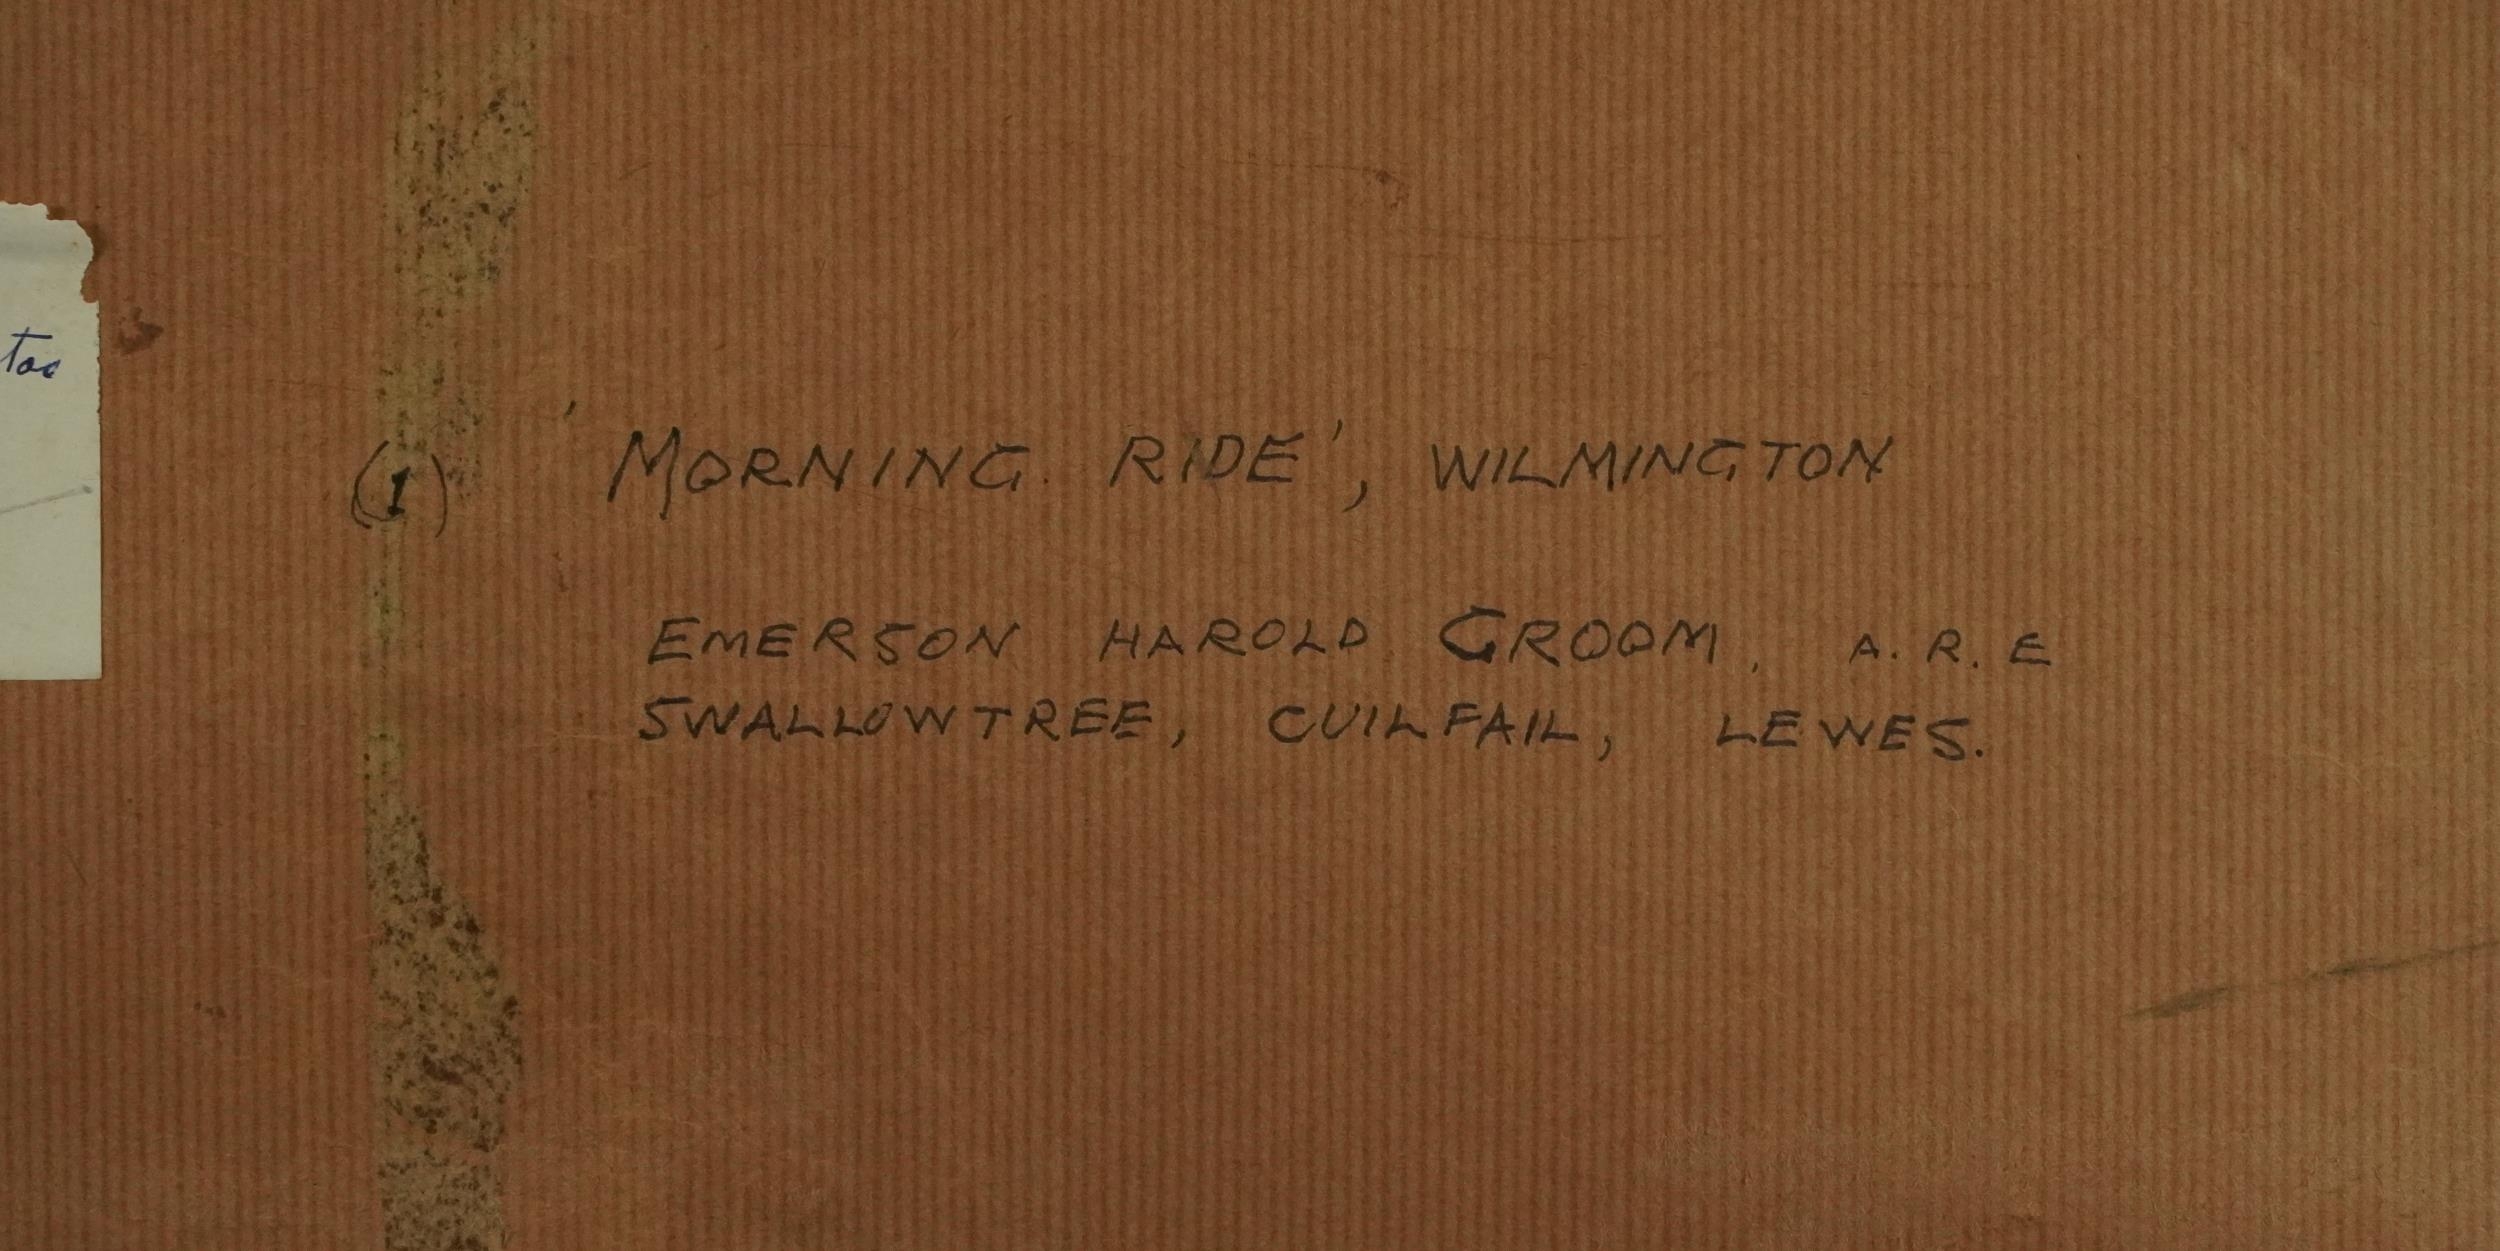 (1) 'MORNING RIDE', WILMINGTON
EMERSON HAROLD GROOM, A. R. E
SWALLOWTREE, CUILFAIL, LEWES.